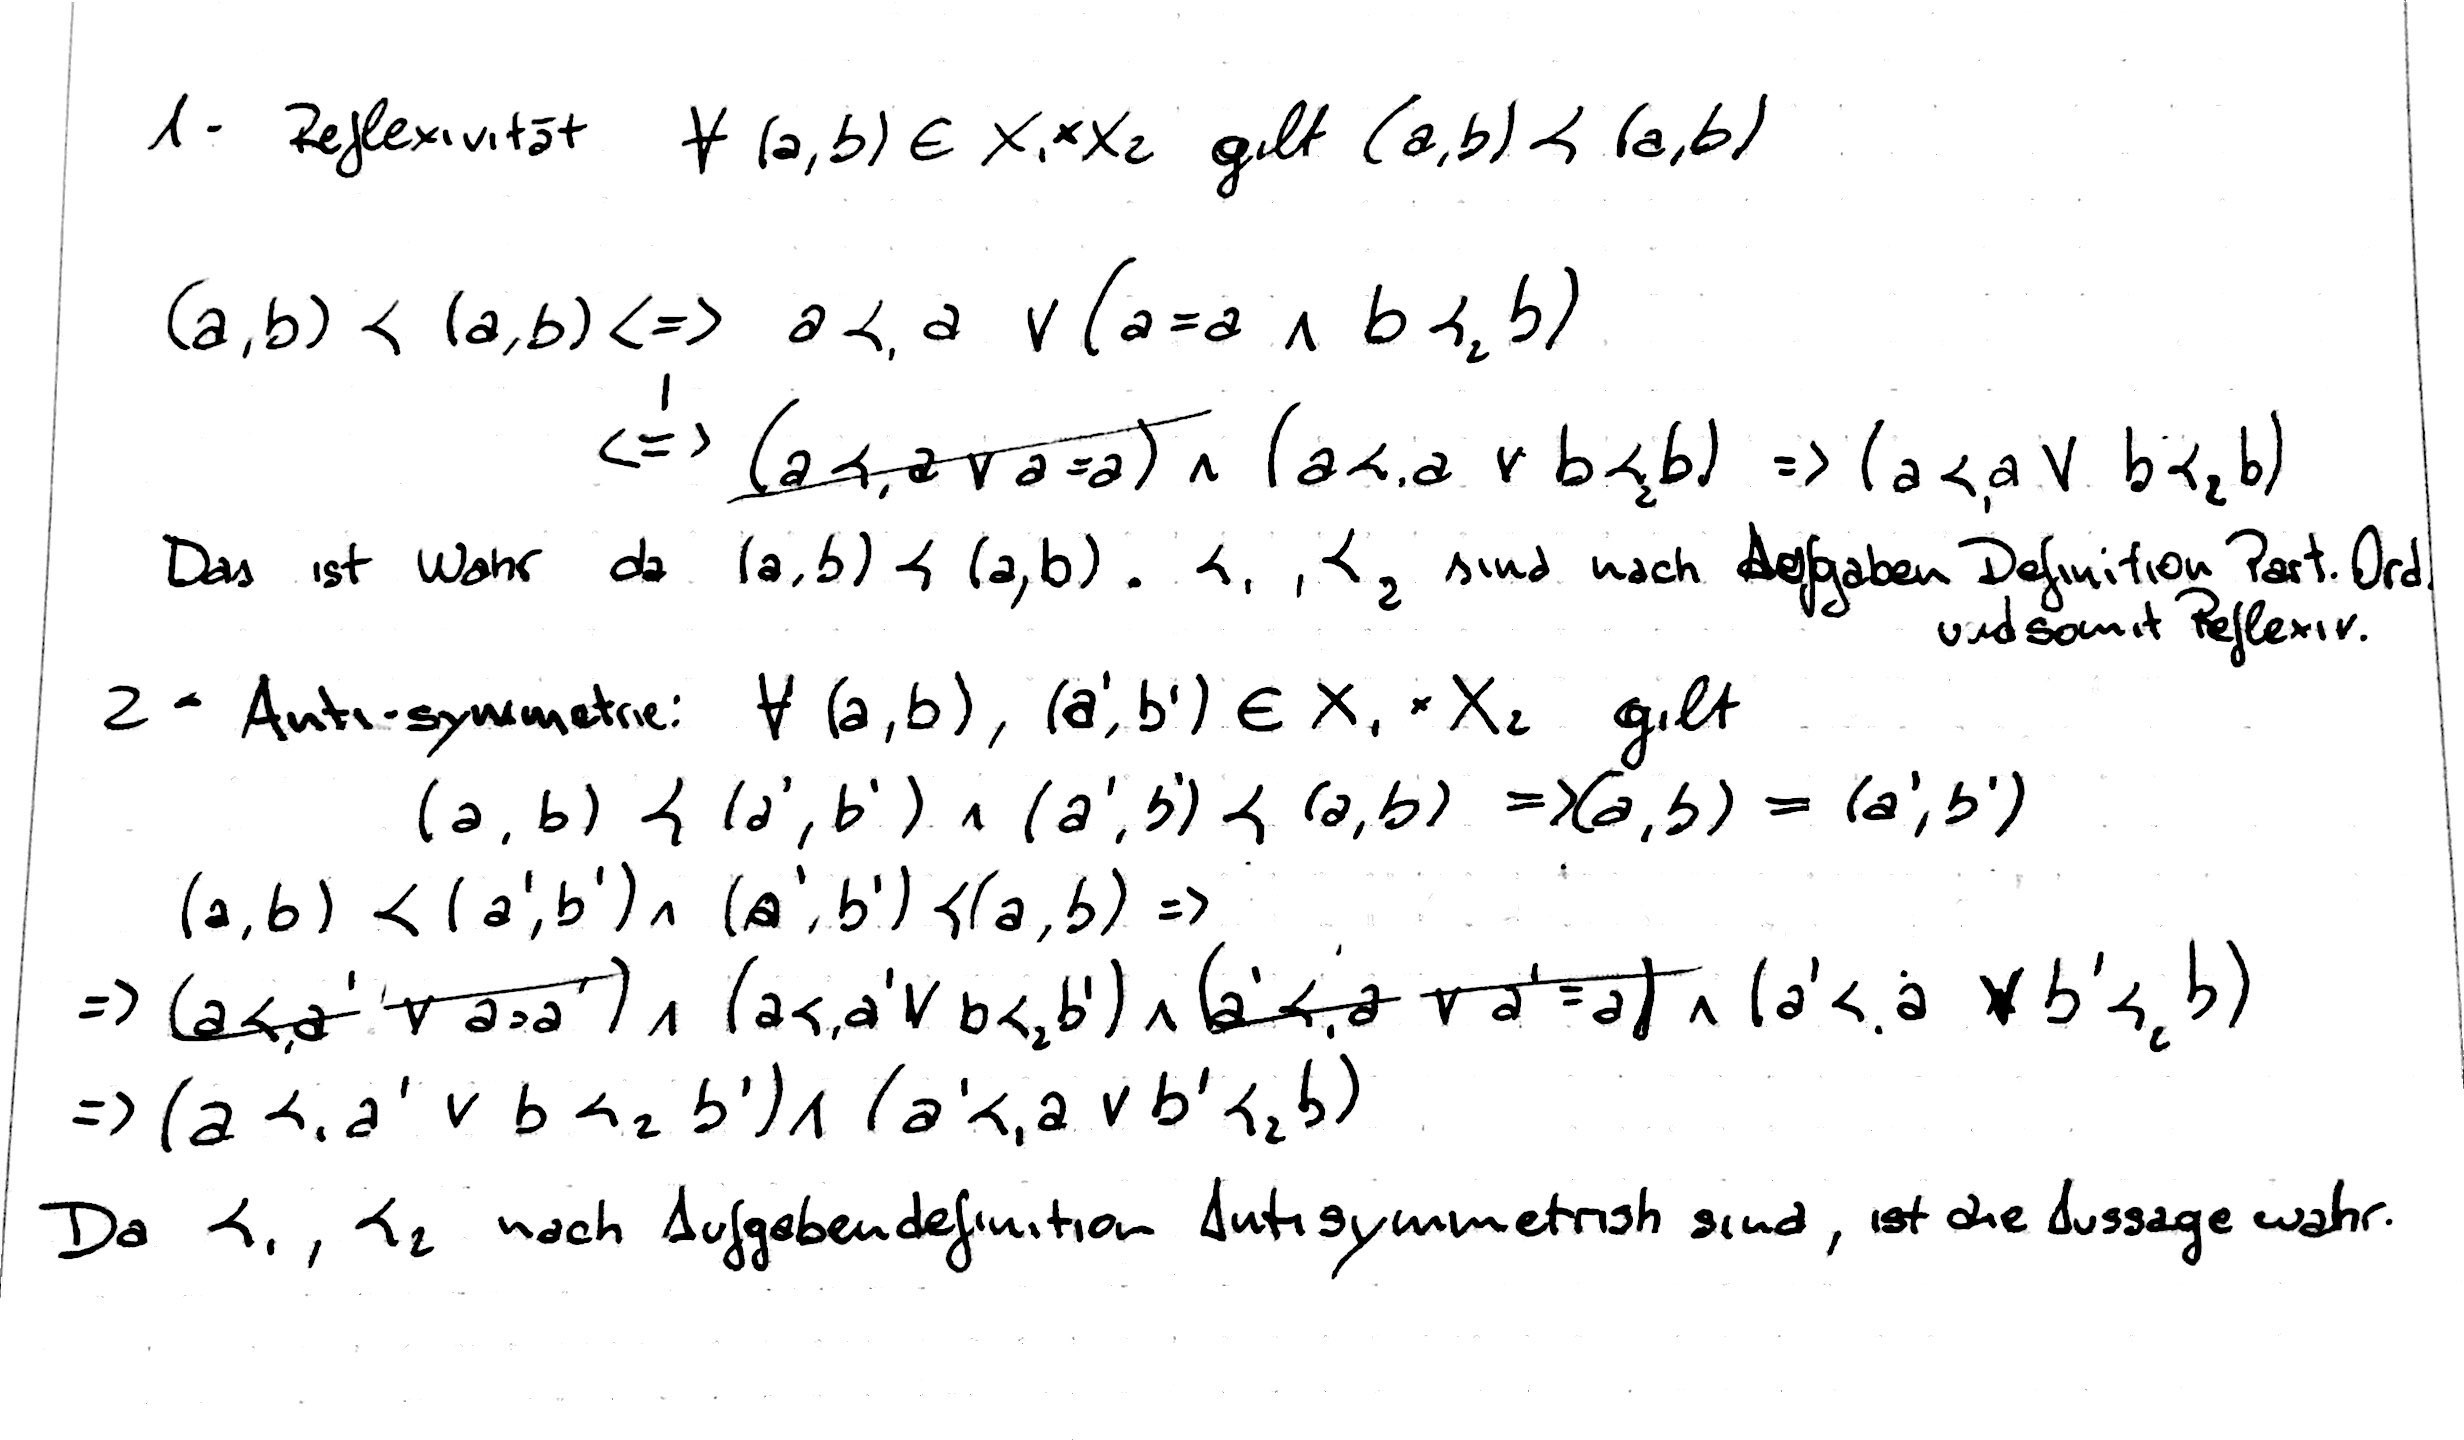 1- Reflexivität ∀ (a,b) ∈ X₁×X₂ gilt (a,b) ≺ (a,b)
(a,b) ≺ (a,b) <=> a ≺₁ a ∨ (a=a ∧ b ≺₂ b)
<=> (a ≺₁ a ∨ a=a) ∧ (a ≺₁ a ∨ b ≺₂ b) => (a ≺₁ a ∨ b ≺₂ b)
Das ist Wahr da (a,b) ≺ (a,b). ≺₁, ≺₂ sind nach Aufgaben Definition Part. Ord.
und somit Reflexiv.
2- Anti-symmetrie: ∀ (a,b), (a',b') ∈ X₁ × X₂ gilt
(a,b) ≺ (a',b') ∧ (a',b') ≺ (a,b) => (a,b) = (a',b')
(a,b) ≺ (a',b') ∧ (a',b') ≺ (a,b) =>
=> (a ≺₁ a' ∨ a=a') ∧ (a ≺₁ a' ∨ b ≺₂ b') ∧ (a' ≺₁ a ∨ a'=a) ∧ (a' ≺₁ a ∨ b' ≺₂ b)
=> (a ≺₁ a' ∨ b ≺₂ b') ∧ (a' ≺₁ a ∨ b' ≺₂ b)
Da ≺₁, ≺₂ nach Aufgabendefinition Antisymmetrish sind, ist die Aussage wahr.